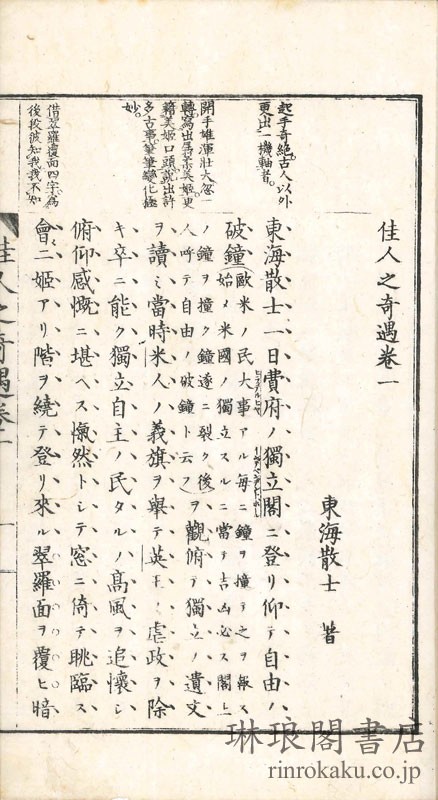 佳人之奇遇卷一
東海散士 著
東海散士一日費府ノ獨立閣ニ登リ仰テ自由ノ
破鐘歐米ノ民大事アル每ニ鐘ヲ撞テ之ヲ報ス
始メ米國ノ獨立スルニ當テ吉凶必ス閣上
ノ鐘ヲ撞ク鐘遂ニ裂ク後
人呼テ自由ノ破鐘ト云フヲ觀俯テ獨立ノ遺文
ヲ讀ミ當時米人ノ義旗ヲ擧テ英王ノ虐政ヲ除
キ卒ニ能ク獨立自主ノ民タルノ高風ヲ追懷シ
俯仰感慨ニ堪ヘス愾然トシテ窓ニ倚テ眺臨ス
會二姬アリ階ヲ繞テ登リ來ル翠羅面ヲ覆ヒ暗
起手奇絕古人以外
更出一機軸者
開手雄渾壯大忽一
轉寫出
籍美姬口頭說出許
多古事筆筆變化極
妙
借翠羅覆面四字爲
後段彼知我我不知
佳人之奇遇卷一
琳琅閣書店
rinrokaku.co.jp